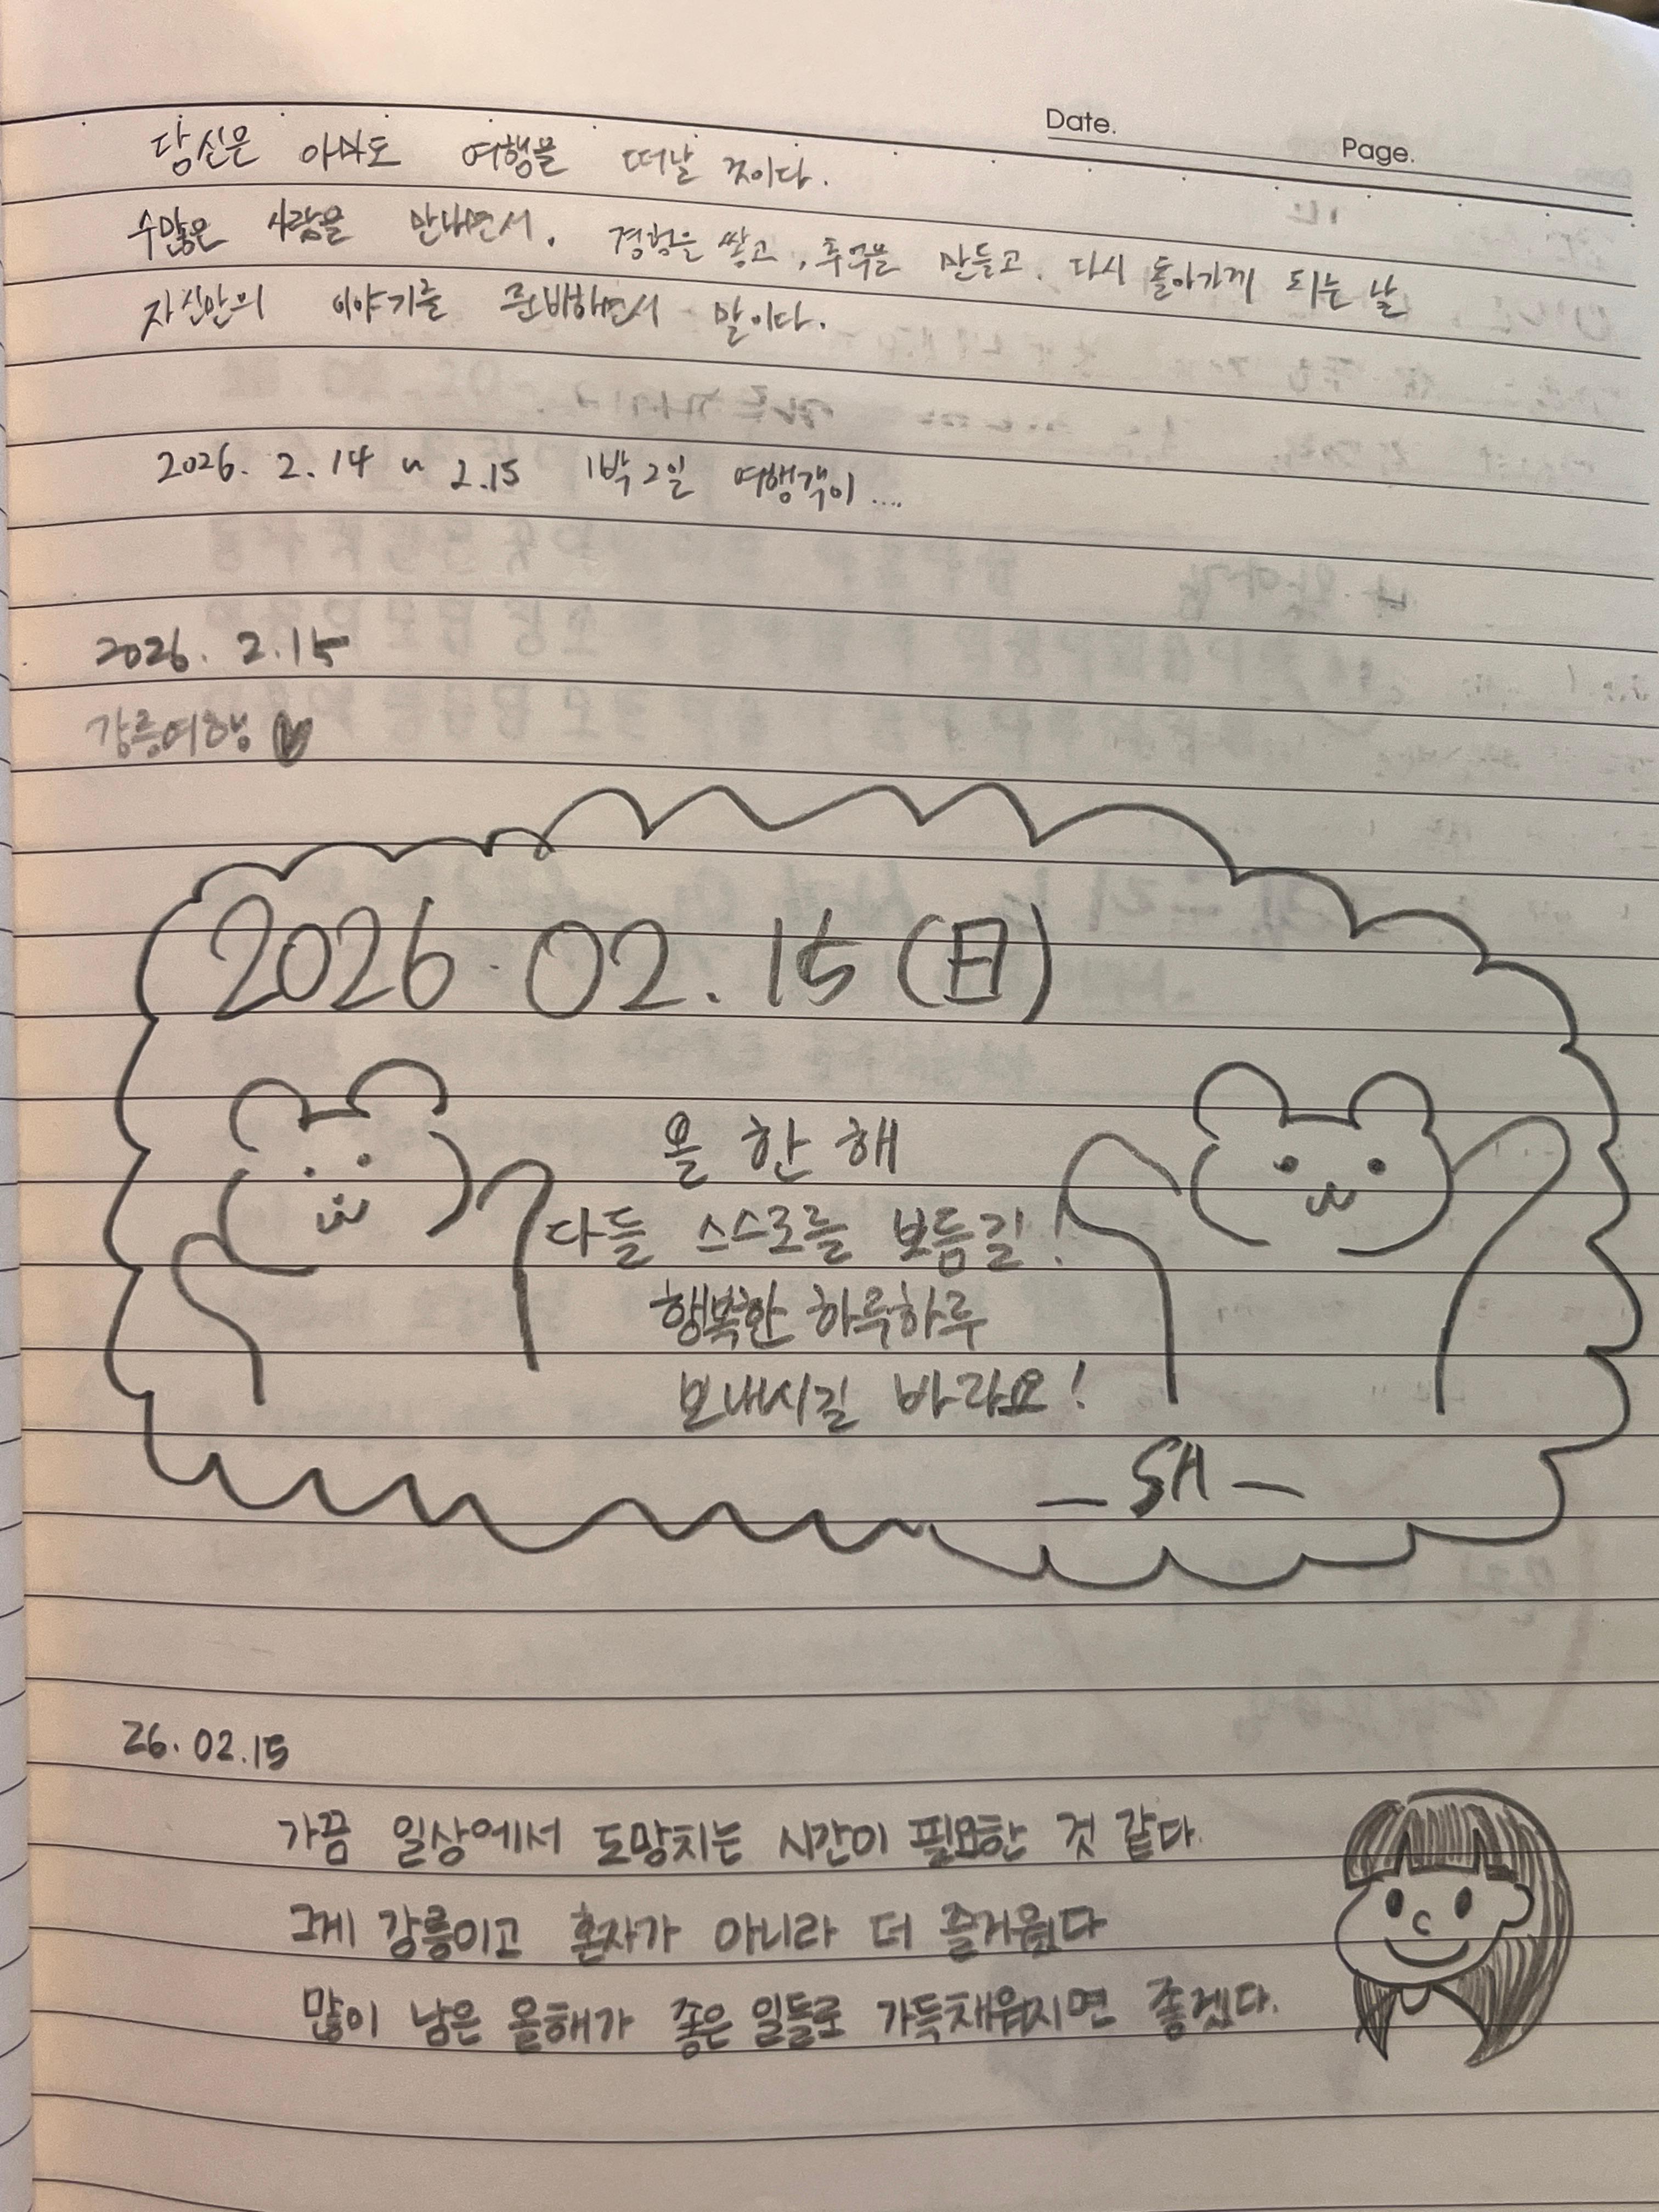 Date.
Page.
당신은 아마도 여행을 떠날 것이다.
수많은 사람을 만나면서. 경험을 쌓고, 추억을 만들고. 다시 돌아가게 되는 날
자신만의 이야기를 준비하면서 말이다.
2026. 2.14 ~ 2.15 1박2일 여행객이 ....
2026. 2.15
강릉여행 ♥
2026. 02. 15 (日)
올 한 해
다들 스스로를 보듬길!
행복한 하루하루
보내시길 바라요!
— SH —
26.02.15
가끔 일상에서 도망치는 시간이 필요한 것 같다.
그게 강릉이고 혼자가 아니라 더 즐거웠다
많이 남은 올해가 좋은 일들로 가득채워지면 좋겠다.